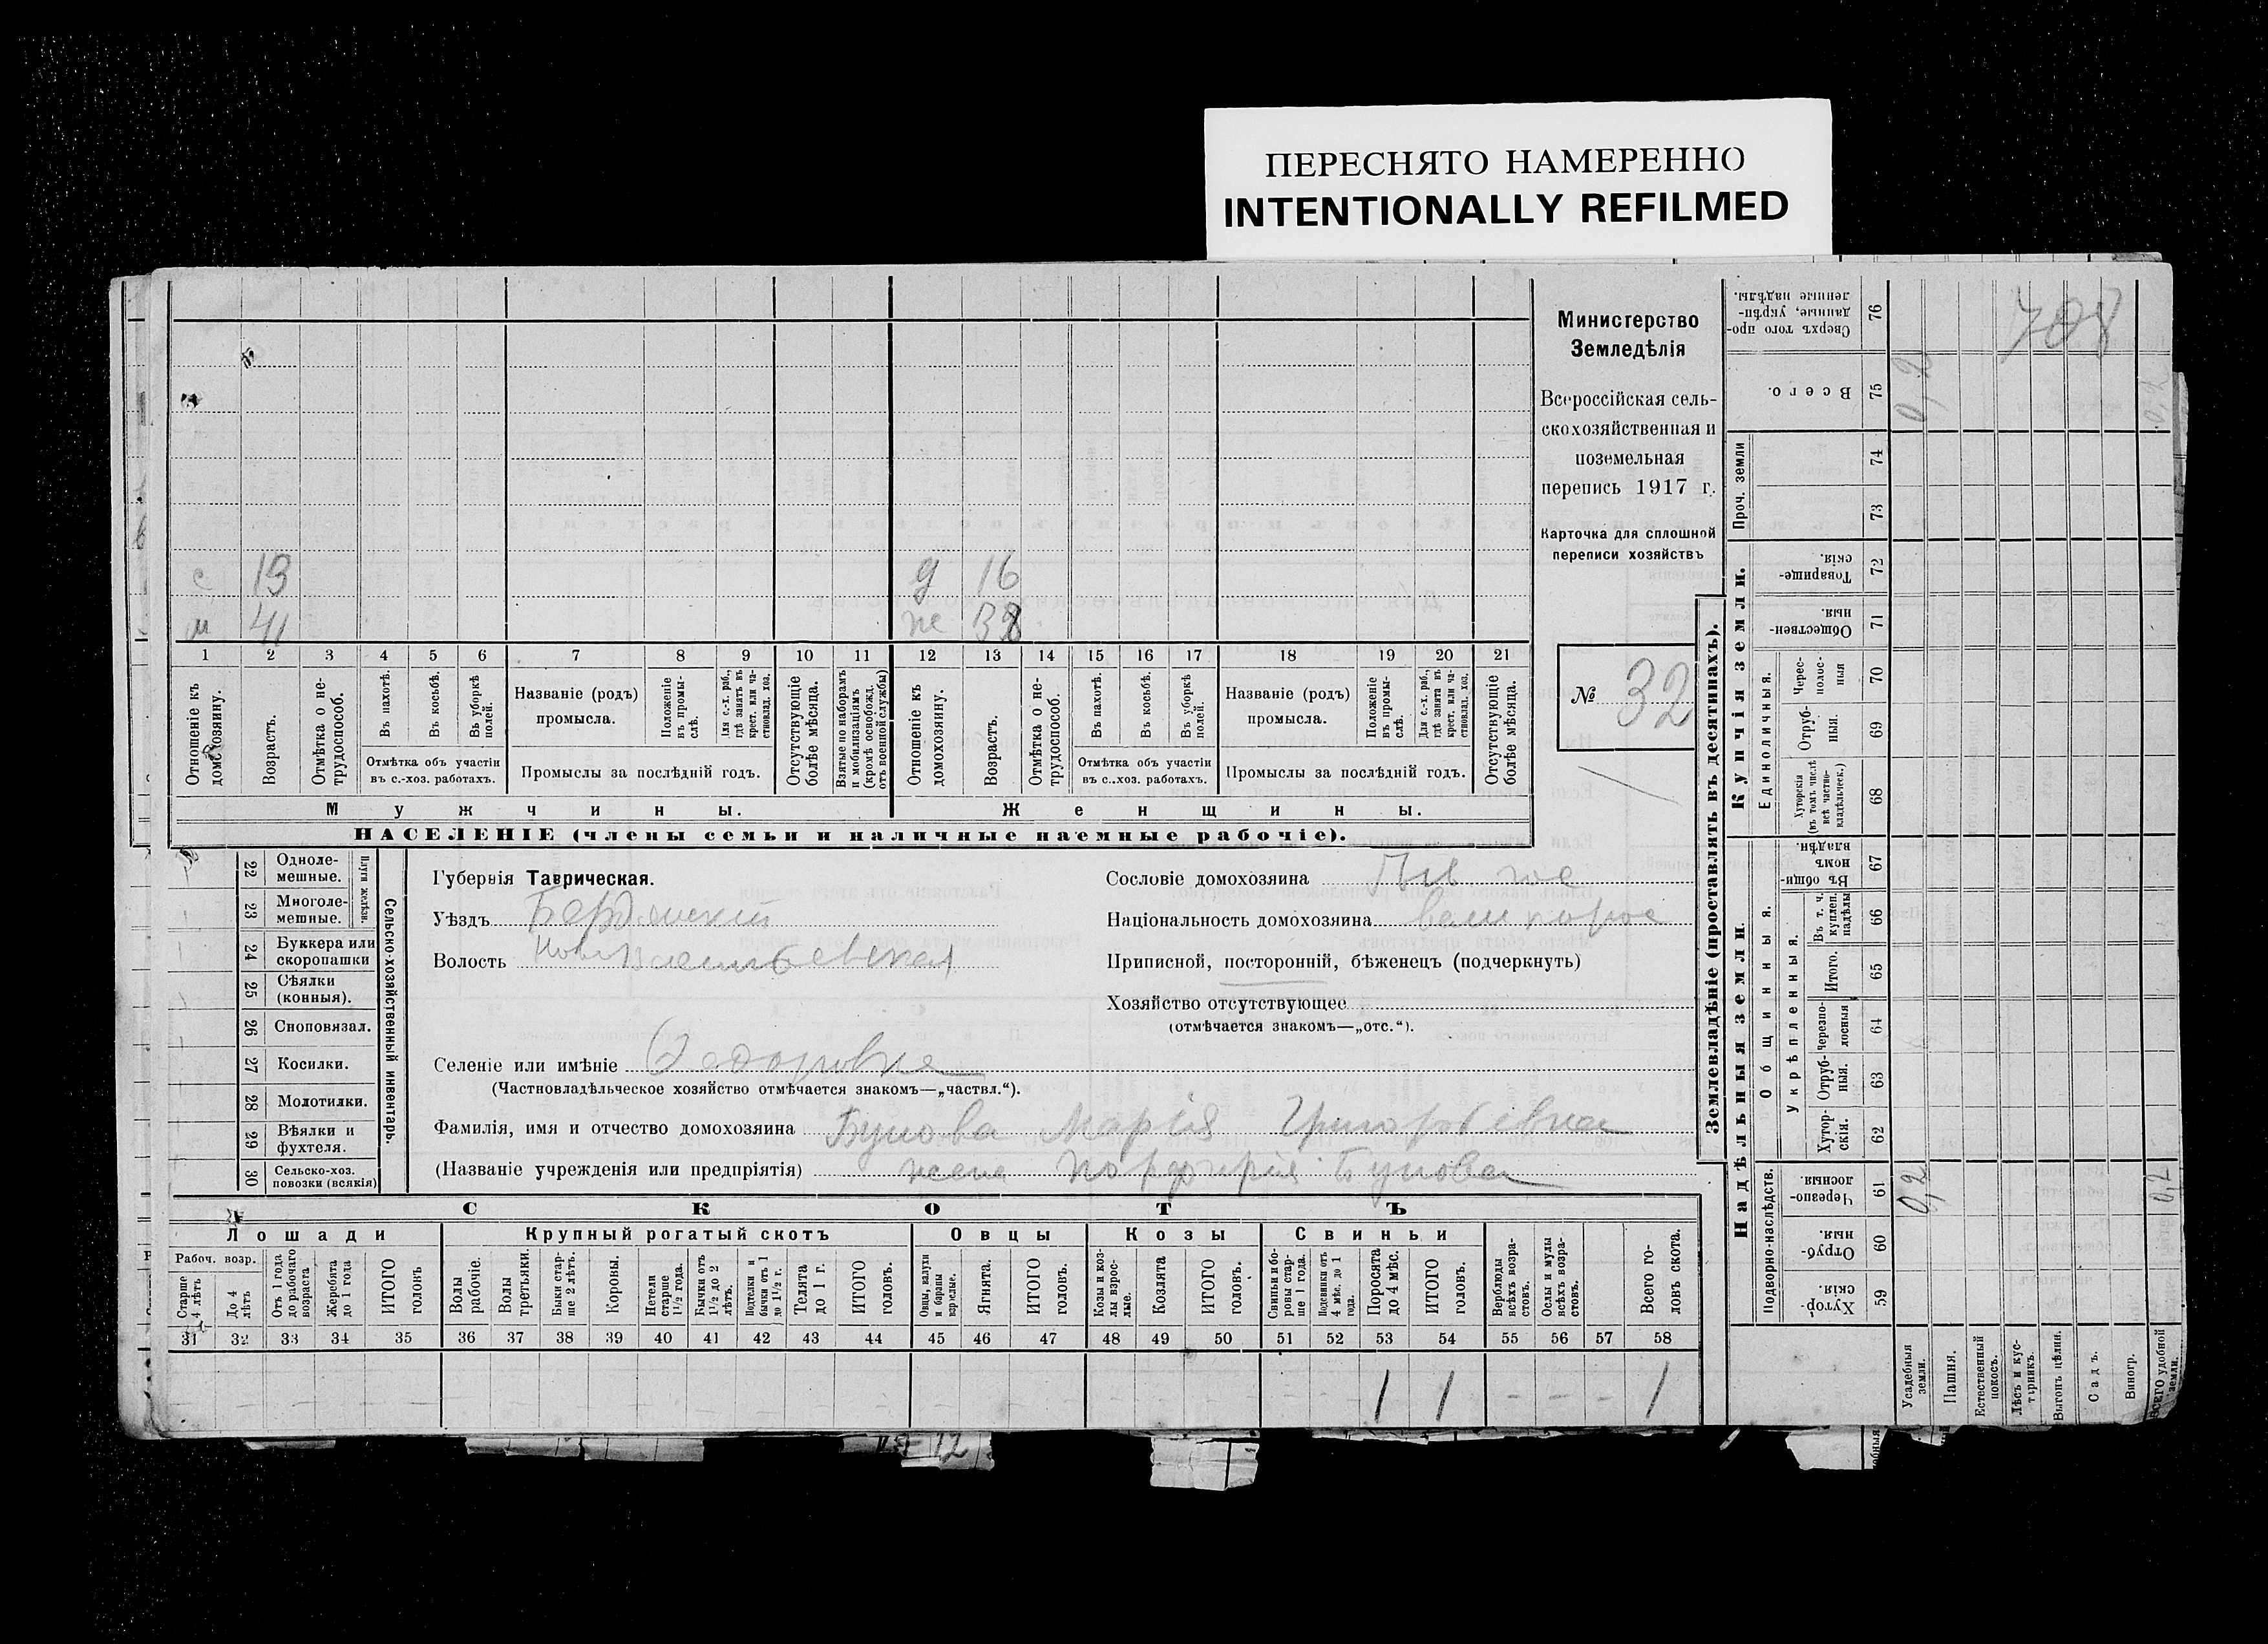 ПЕРЕСНЯТО НАМЕРЕННО
INTENTIONALLY REFILMED
Министерство
Земледѣлія
Всероссійская сель-
скохозяйственная и
поземельная
перепись 1917 г.
Карточка для сплошной
переписи хозяйствъ
№ 32
с 13 д 16
м 41 же
1 2 3 4 5 6 7 8 9 10 11 12 13 14 15 16 17 18 19 20 21
Отношеніе къ домохозяину.
Возрастъ.
Отмѣтка о не-трудоспособ.
Въ пахотѣ.
Въ косьбѣ.
Въ уборкѣ полей.
Отмѣтка объ участіи
въ с.-хоз. работахъ.
Названіе (родъ)
промысла.
Положеніе въ промы-слѣ.
Для с.-х. раб., гдѣ занятъ въ крест. или ча-стновлад. хоз.
Промыслы за послѣдній годъ.
Отсутствующіе болѣе мѣсяца.
Взятые по наборамъ и мобилизаціямъ (кромѣ освобожд. отъ военной службы)
Отношеніе къ домохозяину.
Возрастъ.
Отмѣтка о не-трудоспособ.
Въ пахотѣ.
Въ косьбѣ.
Въ уборкѣ полей.
Отмѣтка объ участіи
въ с.-хоз. работахъ.
Названіе (родъ)
промысла.
Положеніе въ промы-слѣ.
Для с.-х. раб., гдѣ занята въ крест. или ча-стновлад. хоз.
Промыслы за послѣдній годъ.
Отсутствующіе болѣе мѣсяца.
Мужчины. Женщины.
НАСЕЛЕНІЕ (члены семьи и наличные наемные рабочіе).
22 Одноле-мешные.
23 Многоле-мешные.
Плуги желѣзн.
24 Буккера или скоропашки
25 Сѣялки (конныя).
26 Сноповязал.
27 Косилки.
28 Молотилки.
29 Вѣялки и фухтеля.
30 Сельско-хоз. повозки (всякія)
Сельско-хозяйственный инвентарь.
Губернія Таврическая.
Уѣздъ Бердянскій
Волость НовоВасильевская
Селеніе или имѣніе Федоровка
(Частновладѣльческое хозяйство отмѣчается знакомъ—„частвл.“).
Фамилія, имя и отчество домохозяина Бунова Марія Григорьевна
(Названіе учрежденія или предпріятія) жена Порфирія Бунова
Сословіе домохозяина
Національность домохозяина великорос
Приписной, посторонній, бѣженецъ (подчеркнуть)
Хозяйство отсутствующее
(отмѣчается знакомъ—„отс.“).
СКОТЪ
Лошади Крупный рогатый скотъ Овцы Козы Свиньи
Рабоч. возр.
Старше 4 лѣтъ
До 4 лѣтъ
Отъ 1 года до рабочаго возраста
Жеребята до 1 года
ИТОГО головъ
Волы рабочіе.
Волы третьяки.
Быки стар-ше 2 лѣтъ.
Коровы.
Нетели старше 1½ года.
Бычки отъ 1½ до 2 лѣтъ.
Подтелки и бычки отъ 1 до 1½ г.
Телята до 1 г.
ИТОГО головъ.
Овцы, валухи и бараны взрослые.
Ягнята.
ИТОГО головъ.
Козы и коз-лы взрос-лые.
Козлята
ИТОГО головъ.
Свиньи и бо-ровы стар-ше 1 года.
Подсвинки отъ 4 мѣс. до 1 года.
Поросята до 4 мѣс.
ИТОГО головъ.
Верблюды всѣхъ возра-стовъ.
Ослы и мулы всѣхъ возра-стовъ.
Всего го-ловъ скота.
31 32 33 34 35 36 37 38 39 40 41 42 43 44 45 46 47 48 49 50 51 52 53 54 55 56 57 58
1 1 - - - 1
Землевладѣніе (проставлять въ десятинахъ).
Надѣльныя земли. Купчія земли. Проч. земли
Подворно-наслѣдств.
Общинныя.
Укрѣпленныя.
Единоличныя.
Хутор-скія. 59
Отруб-ныя. 60
Черезпо-лосныя. 61
Хутор-скія. 62
Отруб-ныя. 63
Черезпо-лосныя 64
Итого. 65
Въ т. ч. куплен. надѣлы 66
Въ общи-номъ владѣн. 67
Хуторскія (въ томъ числѣ всѣ частно-владѣльческ.) 68
Отруб-ныя. 69
Черес-полос-ныя 70
Обществен-ныя. 71
Товарище-скія. 72
73
74
Всего. 75
Сверхъ того про-данные, укрѣп-ленные надѣлы. 76
Усадебныя земли. 0,2 0,2
Пашня.
Естественный покосъ.
Лѣсъ и кус-тарникъ.
Выгонъ цѣлин.
Садъ.
Виногр.
ВСЕГО удобной земли. 0,2 0,2
708